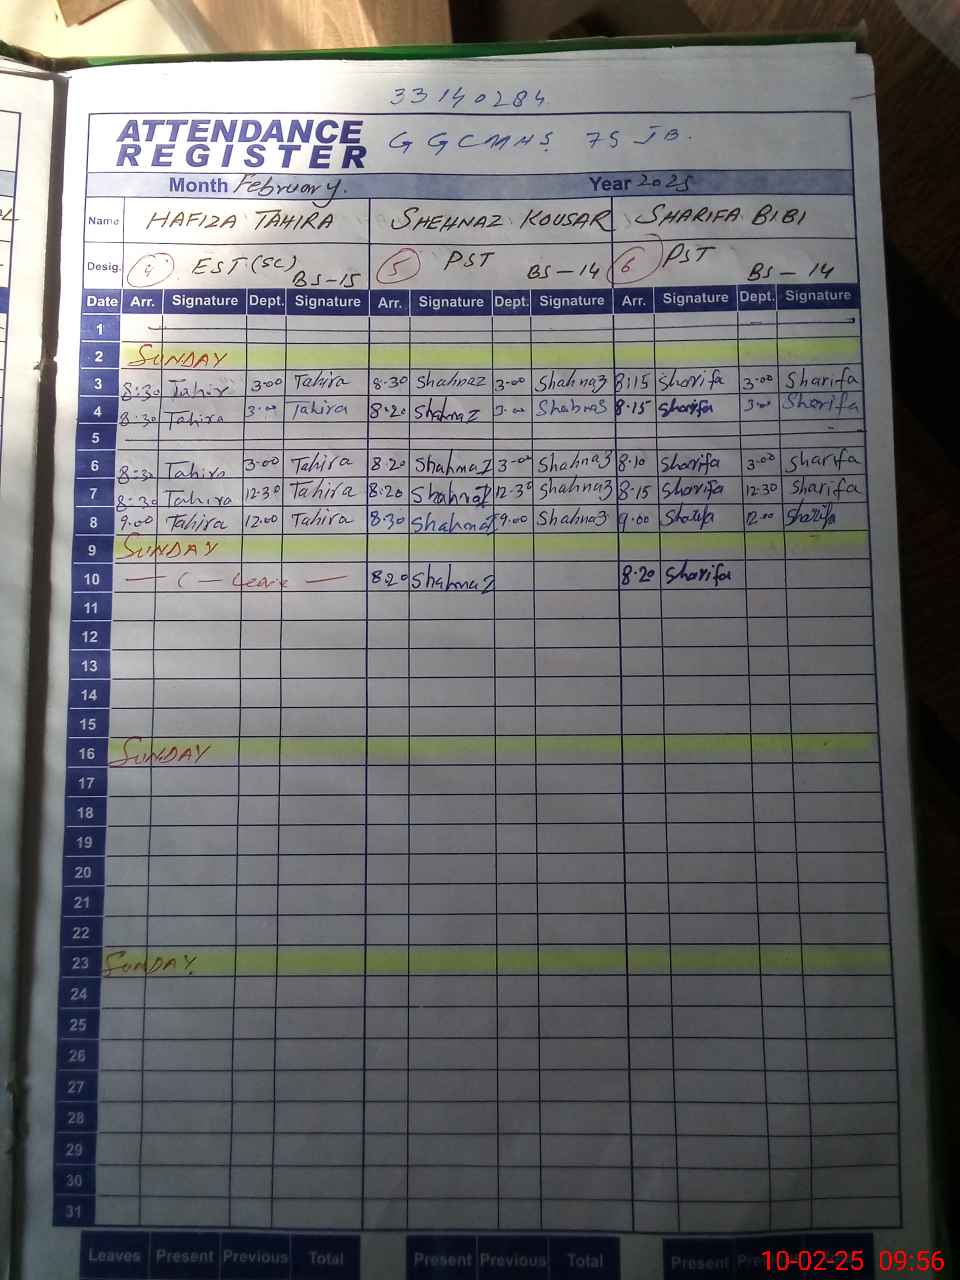 33140284
ATTENDANCE REGISTER
G G C M H S 75 JB.
Month February. Year 2025
Name HAFIZA TAHIRA SHEHNAZ KOUSAR SHARIFA BIBI
Desig. 4 EST (SC) BS-15 5 PST BS-14 6 PST BS-14
Date Arr. Signature Dept. Signature Arr. Signature Dept. Signature Arr. Signature Dept. Signature
1
2 SUNDAY
3 8:30 Tahir 3:00 Tahira 8.30 Shahnaz 3-00 Shahnaz 8:15 Sharifa 3-00 Sharifa
4 8:30 Tahira 3-00 Tahira 8.20 Shahnaz 3-00 Shahnaz 8.15 Sharifa 3-00 Sharifa
5
6 8:30 Tahira 3:00 Tahira 8.20 Shahnaz 3-00 Shahnaz 8.10 Sharifa 3-00 Sharifa
7 8:30 Tahira 12.30 Tahira 8.20 Shahnaz 12.30 Shahnaz 8-15 Sharifa 12.30 Sharifa
8 9.00 Tahira 12.00 Tahira 8.30 Shahnaz 9.00 Shahnaz 9.00 Sharifa 12.00 Sharifa
9 SUNDAY
10 — C — Leave — 8.20 Shahnaz 8.20 Sharifa
11
12
13
14
15
16 SUNDAY
17
18
19
20
21
22
23 SUNDAY
24
25
26
27
28
29
30
31
Leaves Present Previous Total Present Previous Total Present
10-02-25 09:56